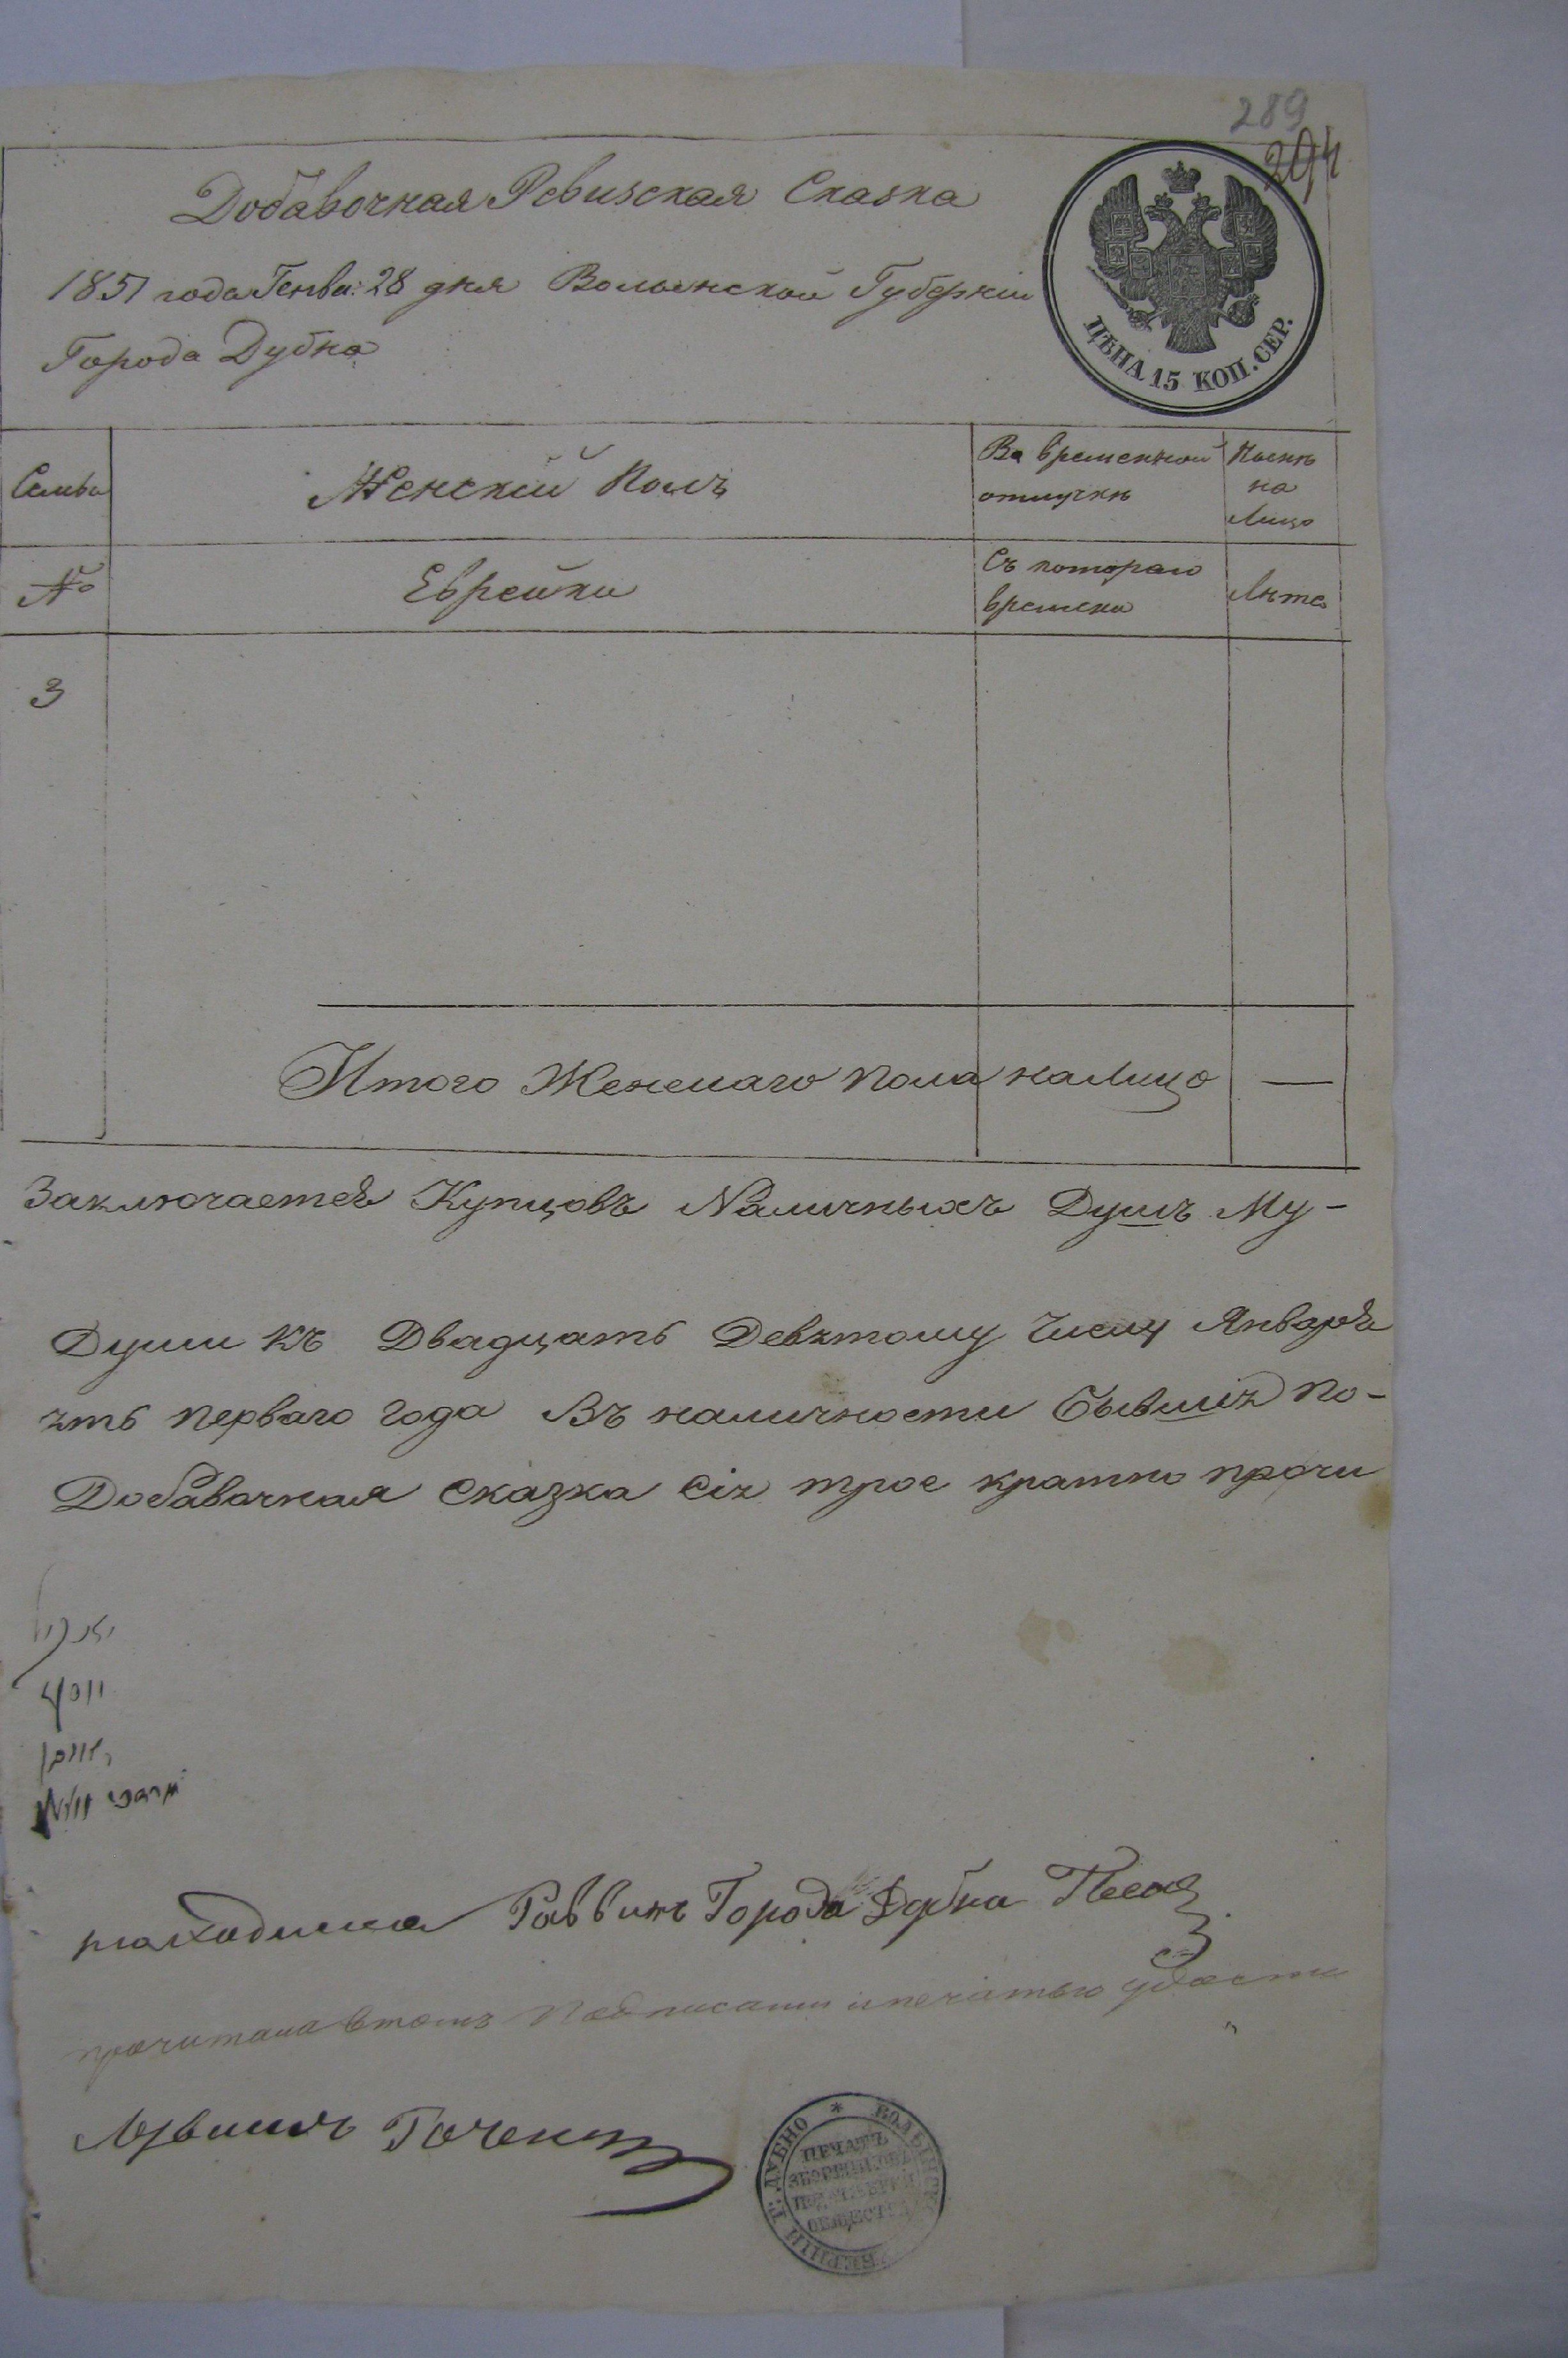 289
294
Добавочная Ревизская Сказка
1851 года Генва: 28 дня Волынской Губерніи
Города Дубна
ЦѢНА 15 КОП. СЕР.
Семьи
Женскій Полъ
Во временной отлучкѣ
Нынѣ на Лицо
№
Еврейки
Съ котораго времени
Лѣта
3
Итого Женскаго пола на Лицо —
Заключается Купцовъ Наличныхъ Душъ Му-
Души къ Двадцать Девятому Числу Января
ятъ перваго года Въ наличности бывшія по-
Добавочная сказка сія трое кратно прочи
находился Раввинъ Города Дубна
прочитана втомъ Подписами ипечатью удости
* ВОЛЫНСКОЙ ГУБЕРНІИ Г: ДУБНО
ПЕЧАТЬ
ОБЩЕСТВА